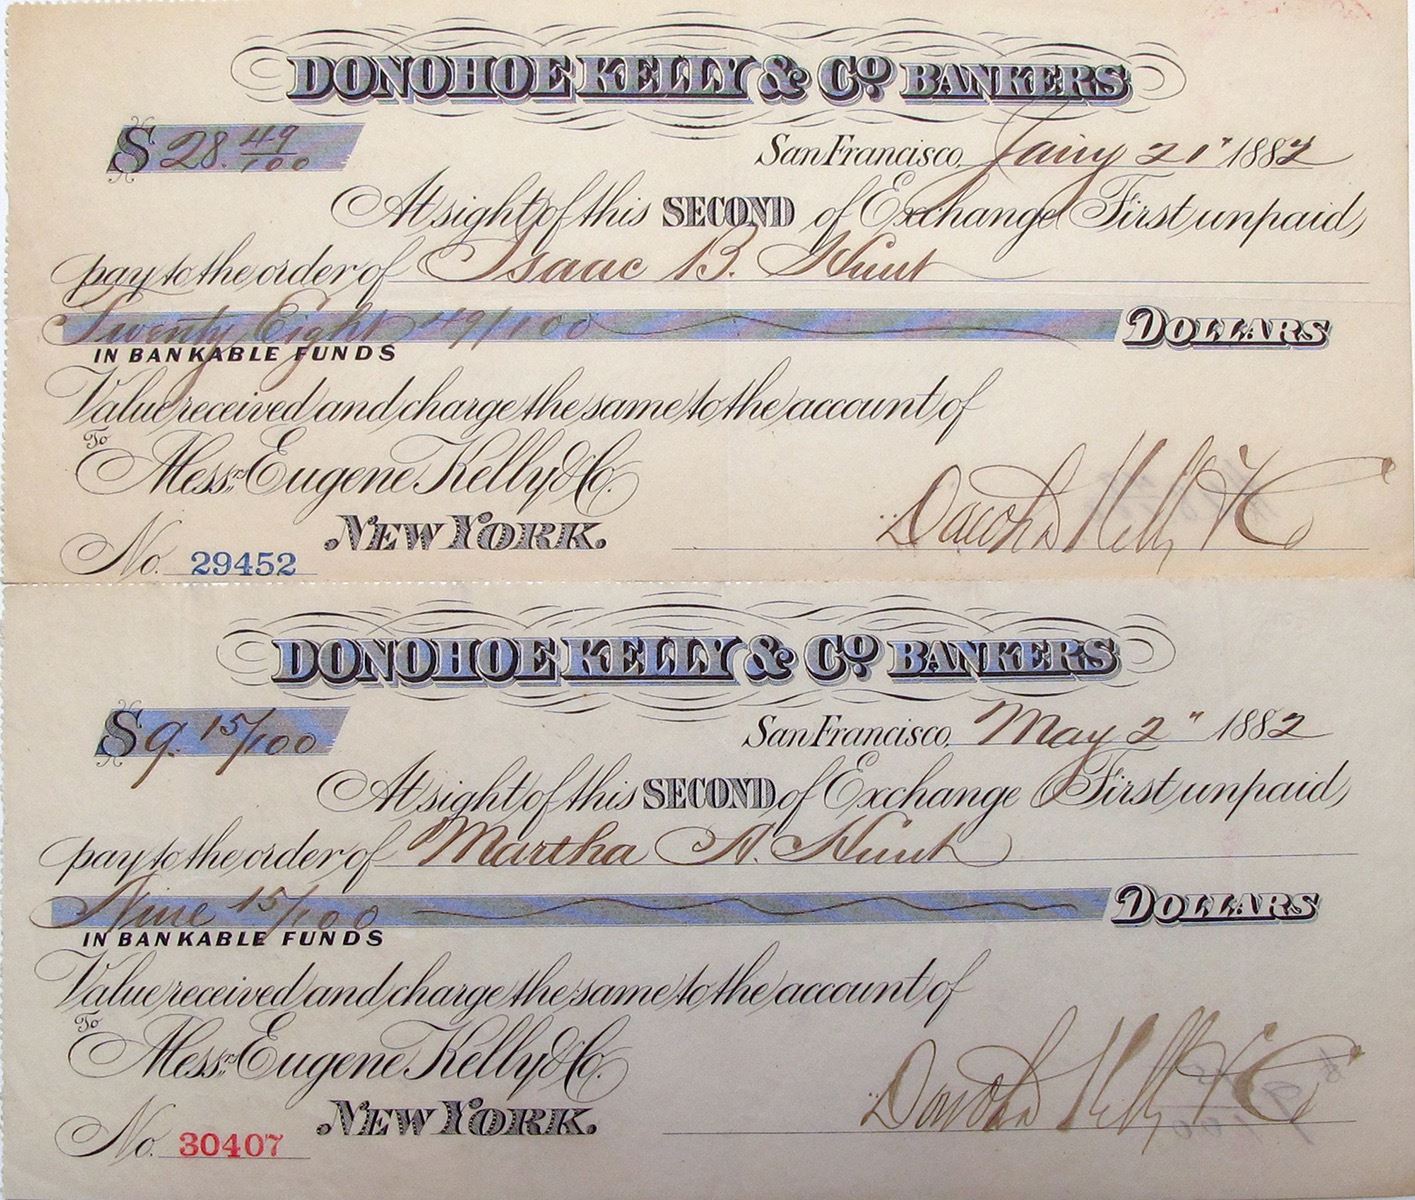 DONOHOE KELLY & Co BANKERS
$ 28. 49/100
San Francisco, Jany 21" 1882
At sight of this SECOND of Exchange First unpaid,
pay to the order of Isaac B. Hunt
Twenty Eight 49/100 DOLLARS
IN BANKABLE FUNDS
Value received and charge the same to the account of
To Messrs Eugene Kelly & Co.
NEW YORK.
Donohoe Kelly & Co
No. 29452
DONOHOE KELLY & Co BANKERS
$ 9. 15/100
San Francisco, May 2" 1882
At sight of this SECOND of Exchange First unpaid,
pay to the order of Martha A. Hunt
Nine 15/100 DOLLARS
IN BANKABLE FUNDS
Value received and charge the same to the account of
To Messrs Eugene Kelly & Co.
NEW YORK.
Donohoe Kelly & Co
No. 30407